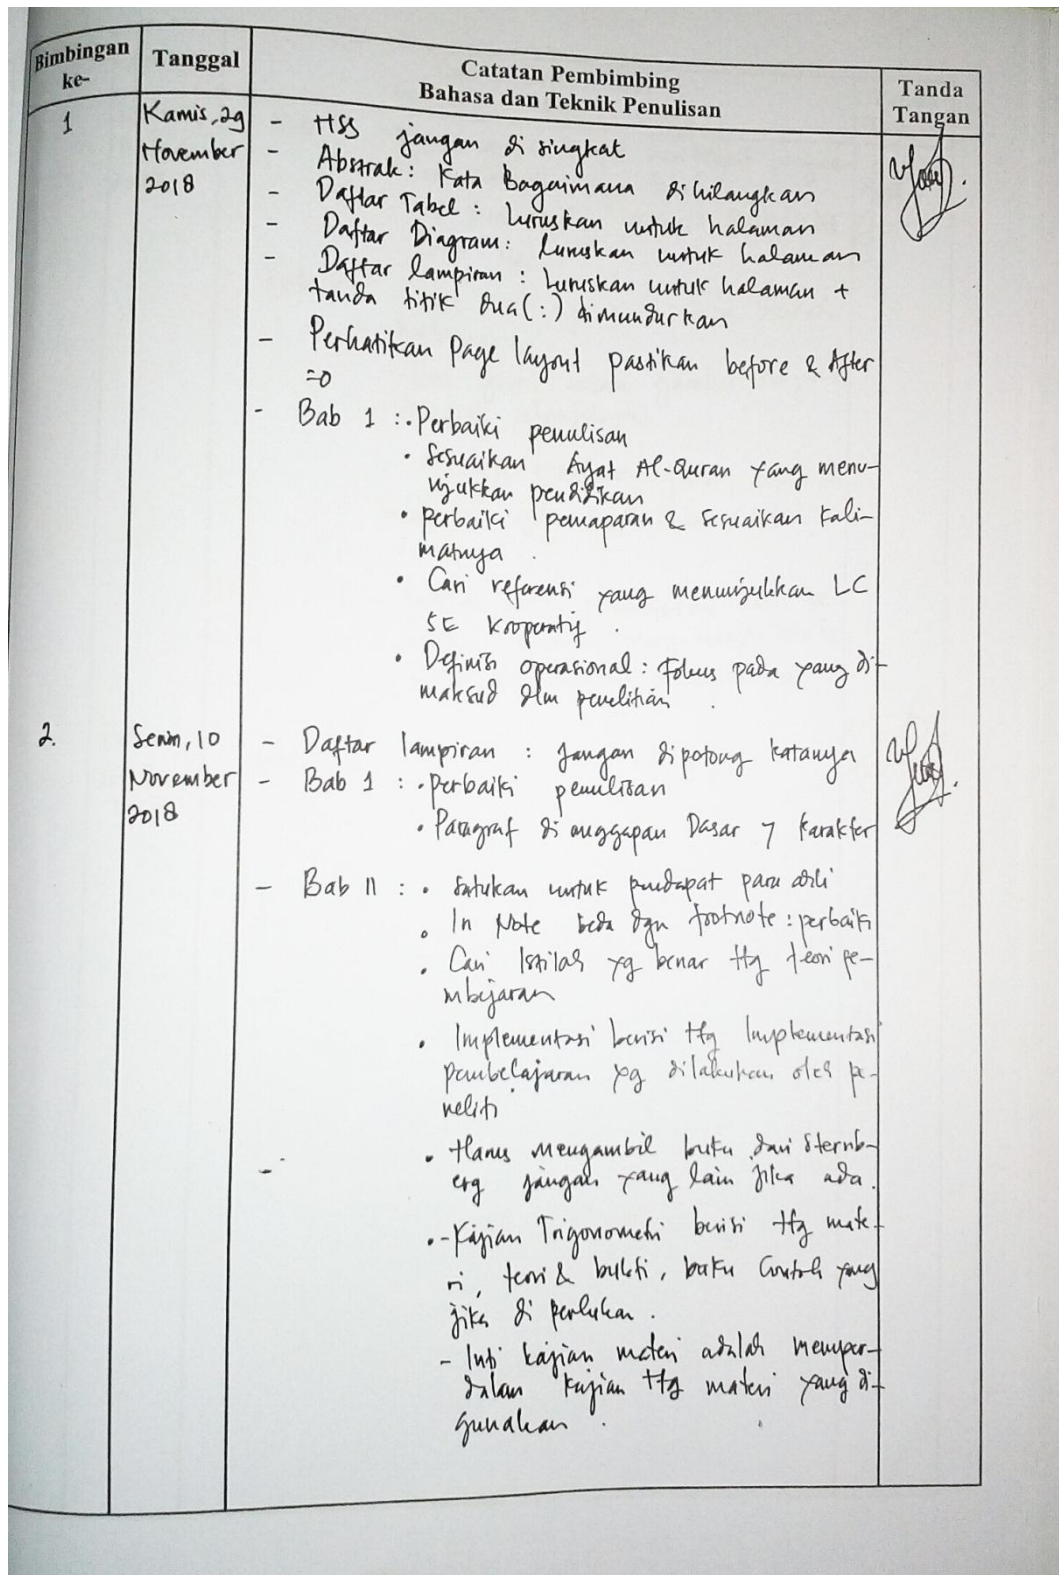 Bimbingan ke-
Tanggal
Catatan Pembimbing
Bahasa dan Teknik Penulisan
Tanda
Tangan
1
Kamis, 29
November
2018
- HSS jangan di singkat
- Abstrak: Kata Bagaimana di hilangkan
- Daftar Tabel : Luruskan untuk halaman
- Daftar Diagram: Luruskan untuk halaman
- Daftar lampiran : Luruskan untuk halaman +
tanda titik dua (:) dimundurkan
- Perhatikan Page layout pastikan before & After
=0
- Bab 1 : • Perbaiki penulisan
• Sesuaikan Ayat Al-Quran yang menu-
njukkan pendidikan
• perbaiki pemaparan & sesuaikan kali-
matnya .
• Cari referensi yang menunjukkan LC
5E Kooperatif .
• Definisi operasional : Fokus pada yang di
maksud dlm penelitian .
2.
Senin, 10
November
2018
- Daftar lampiran : jangan dipotong katanya
- Bab 1 : • perbaiki penulisan
• Paragraf di anggapan Dasar 7 karakter
- Bab II : • Satukan untuk pendapat para ahli
• In Note beda dgn footnote : perbaiki
• Cari Istilah yg benar ttg teori pe-
mbljaran
• Implementasi berisi ttg Implementasi
pembelajaran yg dilakukan oleh pe-
neliti
• Harus mengambil buku dari Sternb-
erg jangan yang lain jika ada.
• - Kajian Trigonometri berisi ttg mate-
ri, teori & bukti, baku Contoh yang
jika di perlukan .
- Inti kajian materi adalah memper-
dalam kajian ttg materi yang di
gunakan .